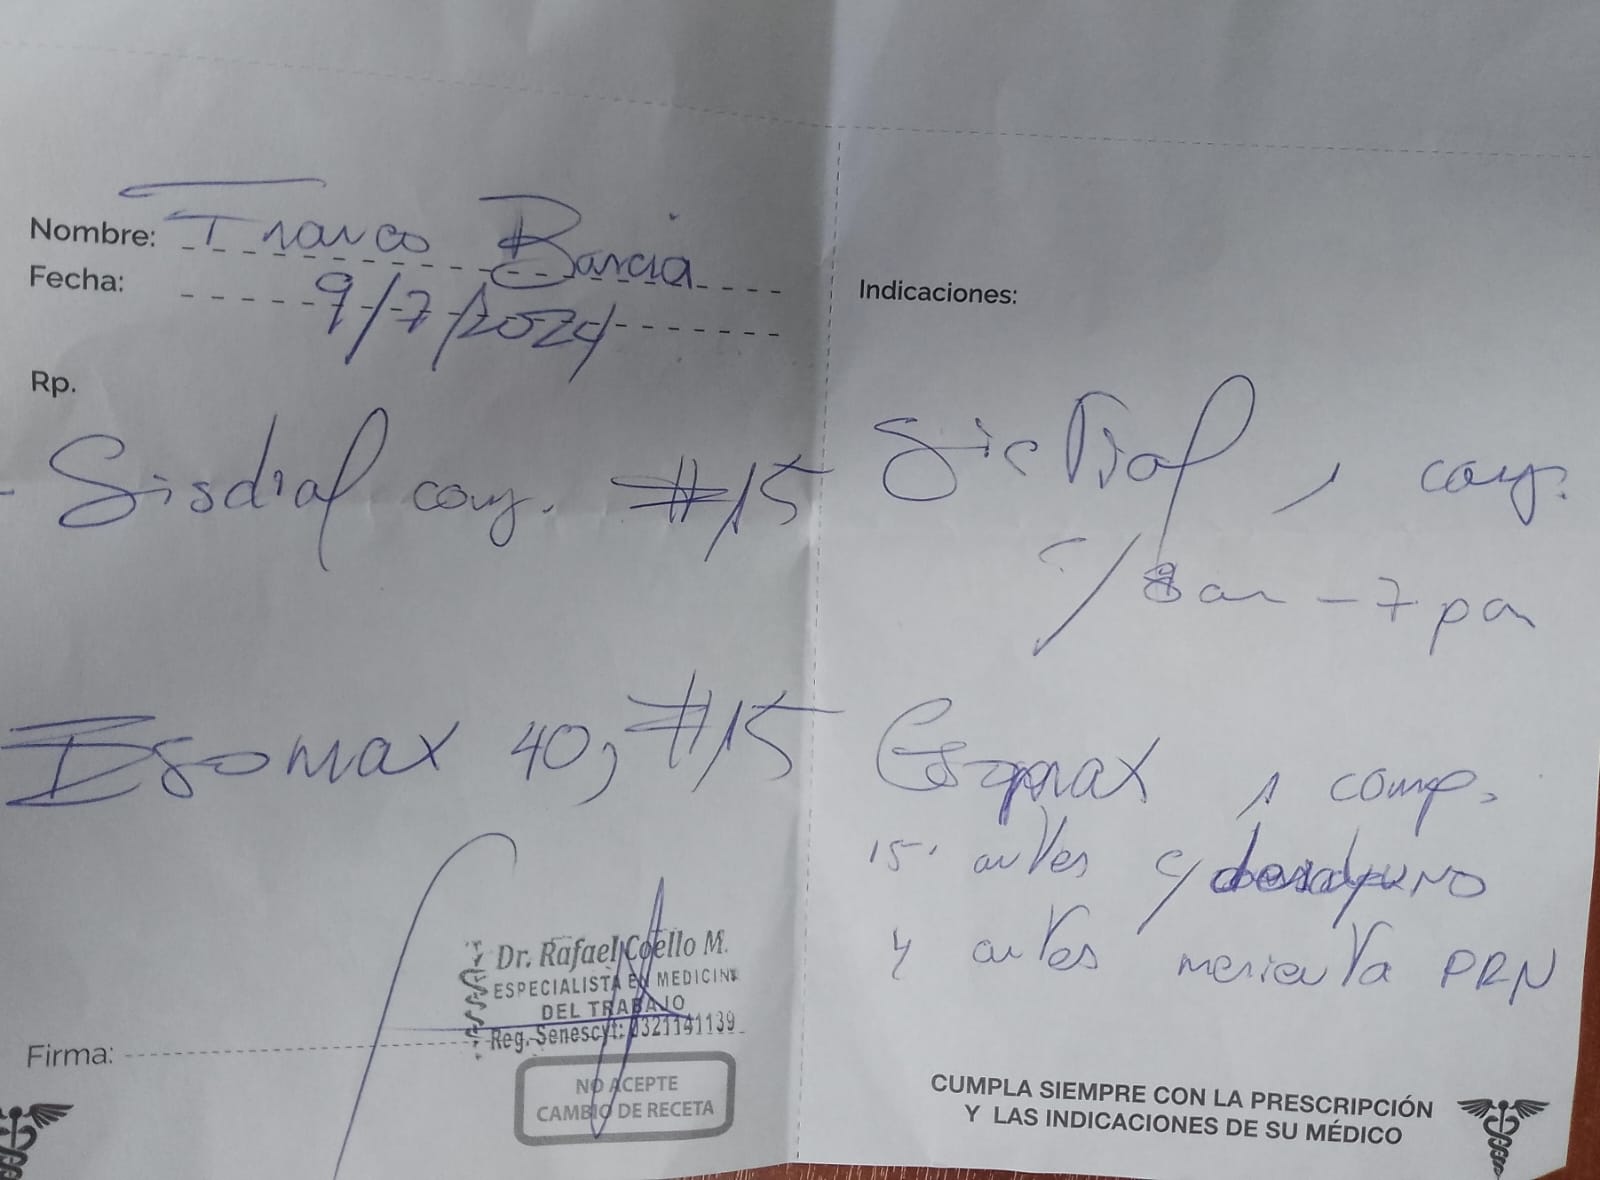 Nombre: Franco Barcia
Fecha: 9/7/2024
Rp.
Sisdial comp. #15
Esomax 40, #15
Dr. Rafael Coello M.
ESPECIALISTA EN MEDICINA
DEL TRABAJO
Reg. Senescyt: 0321141139
Firma:
NO ACEPTE
CAMBIO DE RECETA
Indicaciones:
1 comp.
c/ 8 am - 7 pm
Esomax 1 comp.
15' antes c/ desayuno
y antes merienda PRN
CUMPLA SIEMPRE CON LA PRESCRIPCIÓN
Y LAS INDICACIONES DE SU MÉDICO